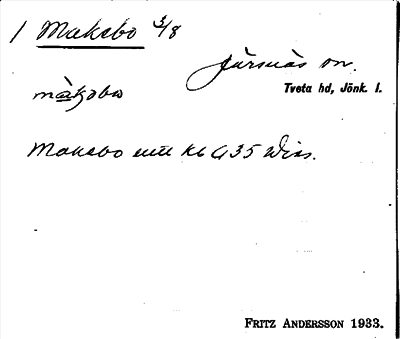 1 Makebo 3/8
Järsnäs sn.
Tveta hd, Jönk. l.
Makebo mtl Kb G 35 Wiss.
FRITZ ANDERSSON 1933.